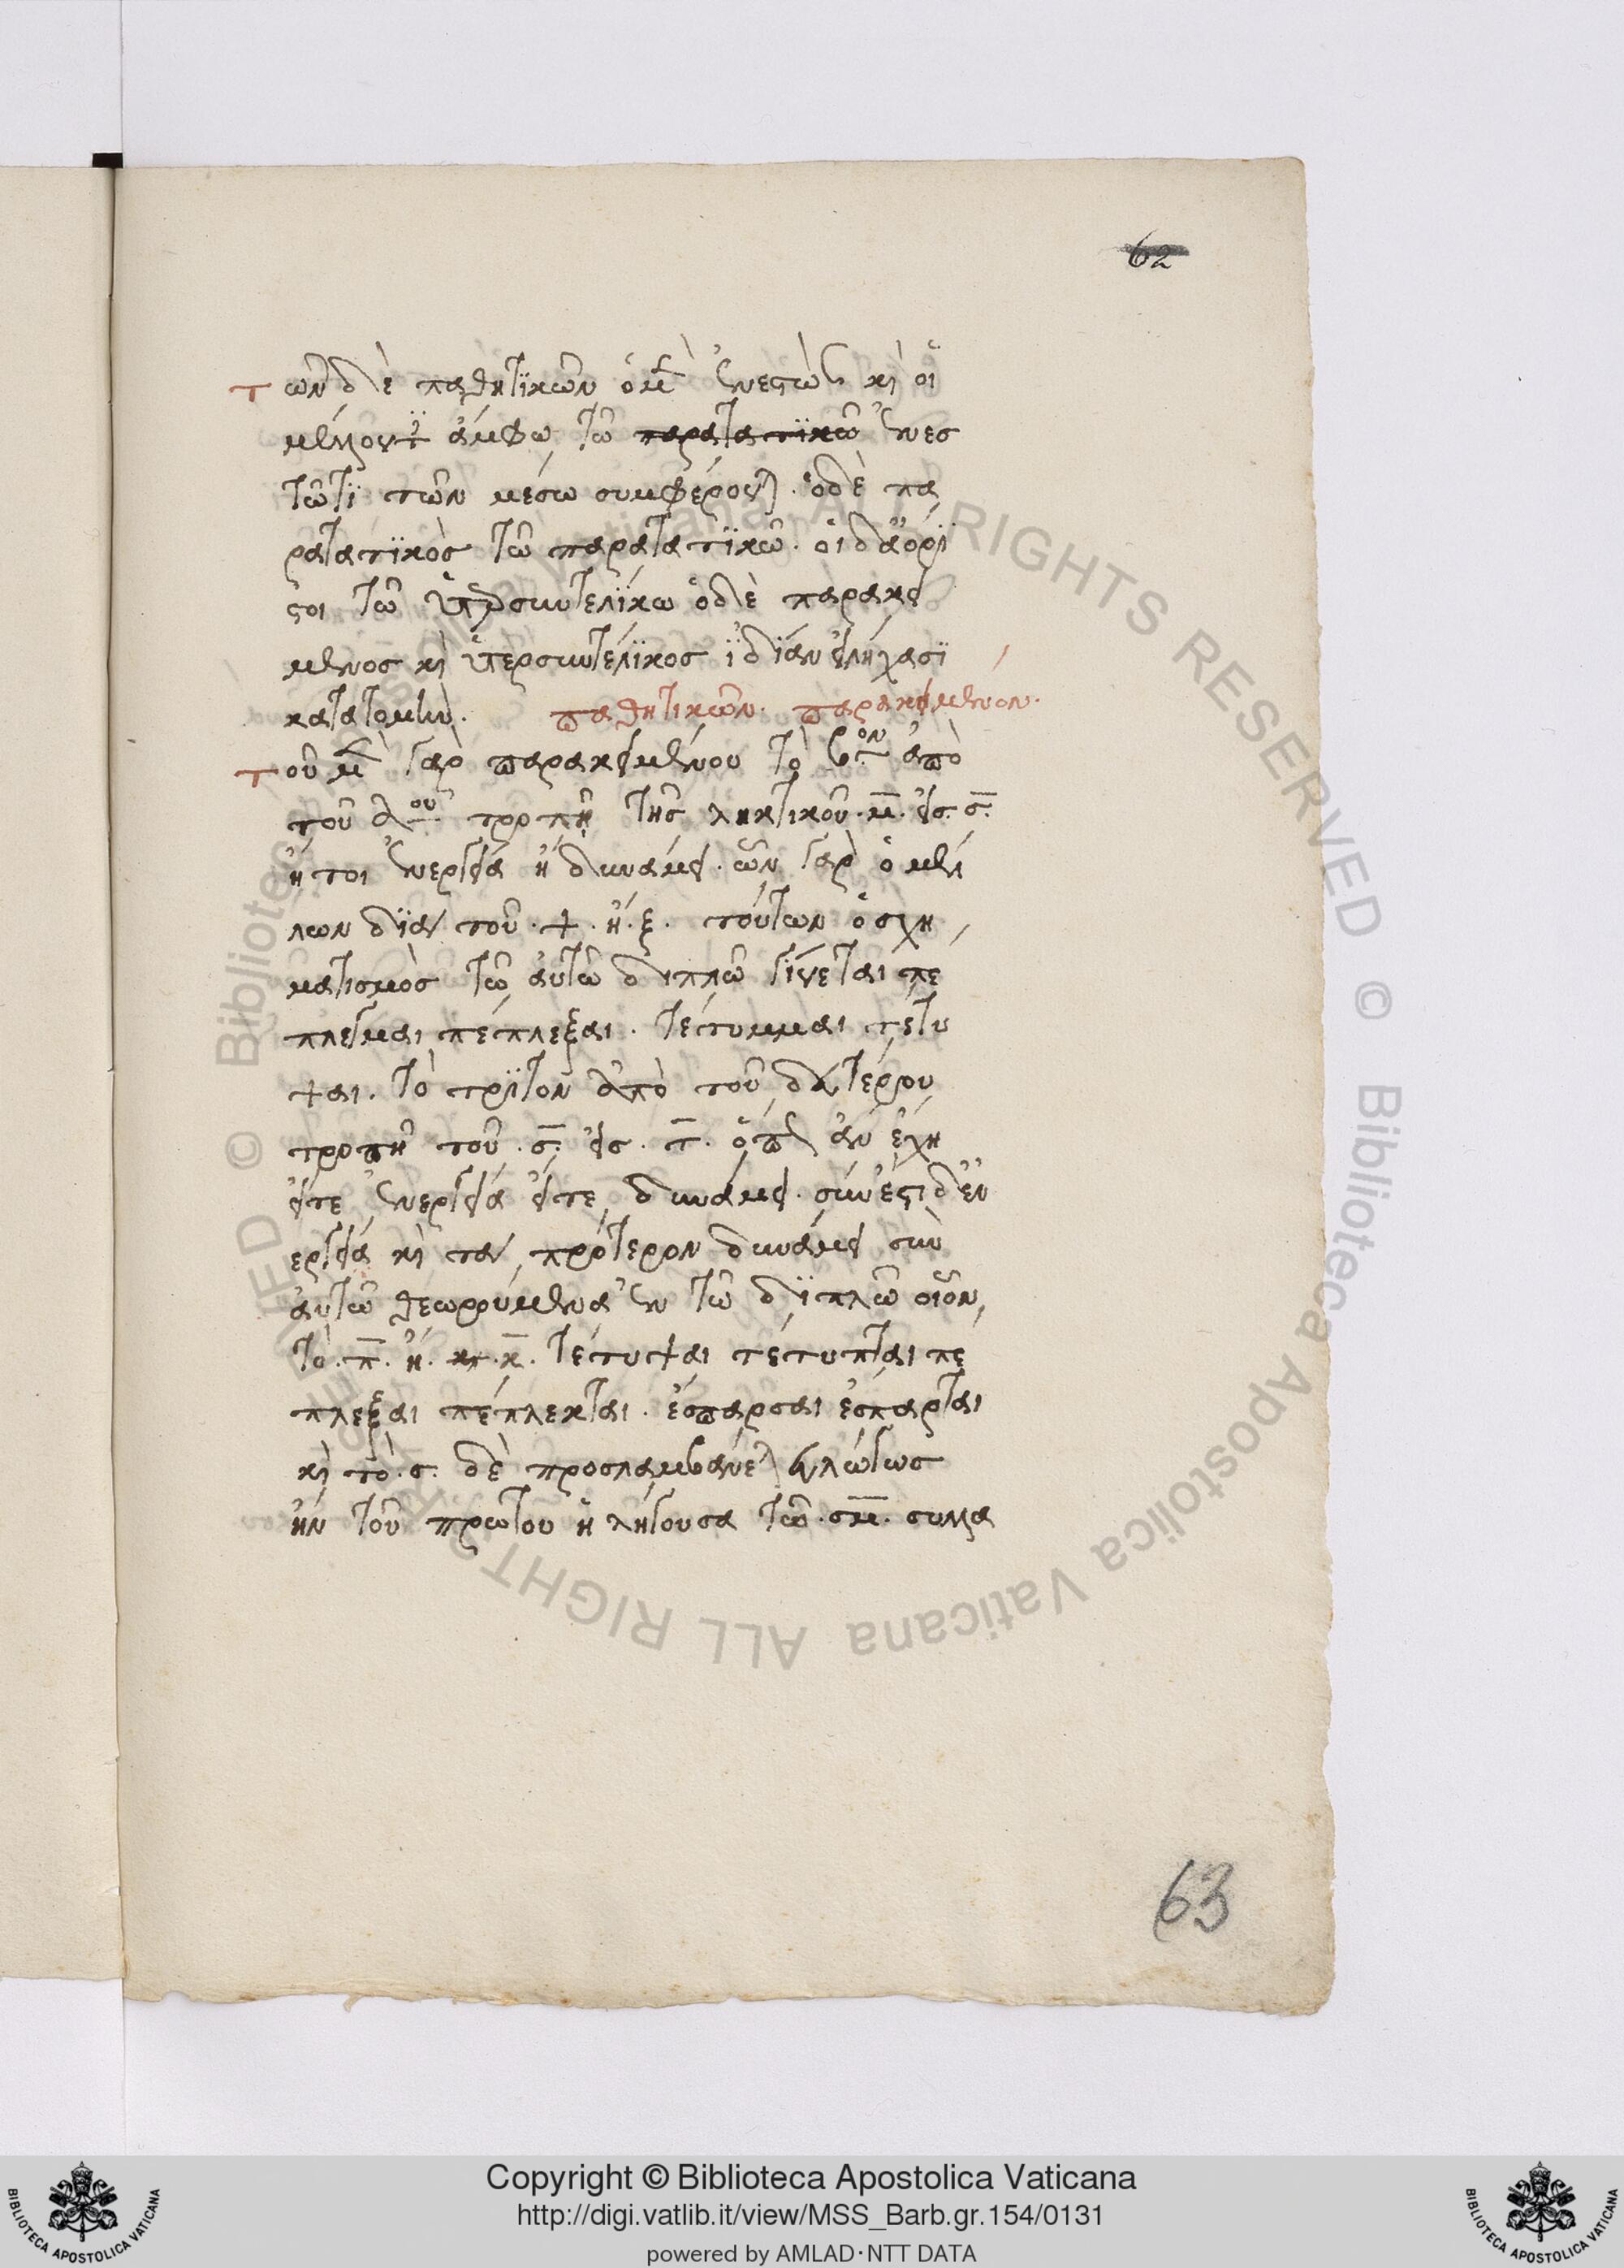 62
των δὲ παθητϊκῶν ὁ μὲν ἐνεστὼς κὶ οἱ
μέλλοντες ἄμφω τῶ παρατατϊκῶ ἐνεσ
τῶτϊ τῶν μέσω συμφέρονται. ὁ δὲ πα
ρατατϊκὸς τῶ παρατατϊκῶ. οἱ δ' ἀόρϊ
στοι τῶ ὑπερσυντελϊκω ὁ δὲ παρακεί
μενος κὶ ὑπερσυντελϊκος ϊδϊαν εἰλήχασϊ
κατατομὴν. παθητικῶν. παρακείμενον.
τοῦ μὲν γὰρ παρακειμένου τὸ βον ἀπὸ
τοῦ αου τροπῆ τῆς ληκτικοῦ. μ. εἰς. σ.
ἤτοι ἐνεργεία ἢ δυνάμει. ὧν γὰρ ὁ μέλ
λων δϊα τοῦ. ψ. ἢ. ξ. τούτων ὁ σχη
ματισμὸς τῶ αὐτῶ διπλῶ γίνεται πε
πλεγμαι πέπλεξαι. τέτυμμαι τέτυ
ψαι. τὸ τρϊτον ἀπὸ τοῦ δευτέρου
τροπῆ τοῦ. σ. εἰς. τ. ὅπερ ἂν ἔχη
εἴτε ἐνεργεία εἴτε δυνάμει. σύνεστι δ' ἐν
εργεία κὶ τα πρότερον δυνάμει σὺν
αὐτῶ θεωρούμενα ἐν τῶ δϊπλῶ οἷον
τὸ. π. ἢ. κτ. κ. τέτυψαι τέτυπται πέ
πλεξαι πέπλεκται. ἔσπαρσαι ἔσπαρται
κὶ τὸ. σ. δὲ προσλαμβάνεται εὐλόγως
ἡν τοῦ πρώτου ἡ λήγουσα τῶ. σμ. συλλα
63
© Biblioteca Apostolica Vaticana ALL RIGHTS RESERVED
Copyright © Biblioteca Apostolica Vaticana
http://digi.vatlib.it/view/MSS_Barb.gr.154/0131
powered by AMLAD·NTT DATA
BIBLIOTECA APOSTOLICA VATICANA
BIBLIOTECA APOSTOLICA VATICANA